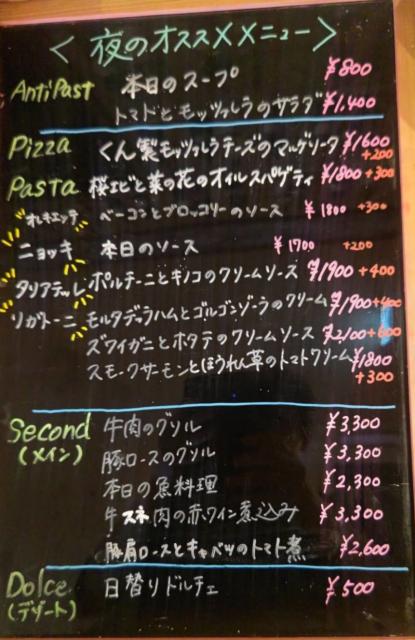 < 夜のオススメメニュー >
AntiPast 本日のスープ ¥800
トマトとモッツァレラのサラダ ¥1,400
Pizza くん製モッツァレラチーズのマルゲリータ ¥1600 +200
Pasta 桜エビと菜の花のオイルスパゲティ ¥1800 +300
オレキエッテ ベーコンとブロッコリーのソース ¥1800 +300
ニョッキ 本日のソース ¥1700 +200
タリアテッレ ポルチーニとキノコのクリームソース ¥1900 +400
リガトーニ モルタデッラハムとゴルゴンゾーラのクリーム ¥1900 +400
ズワイガニとホタテのクリームソース ¥2100 +600
スモークサーモンとほうれん草のトマトクリーム ¥1800
+300
Second 牛肉のグリル ¥3,300
(メイン) 豚ロースのグリル ¥3,300
本日の魚料理 ¥2,300
牛スネ肉の赤ワイン煮込み ¥3,300
豚肩ロースとキャベツのトマト煮 ¥2,600
Dolce 日替りドルチェ ¥500
(デザート)